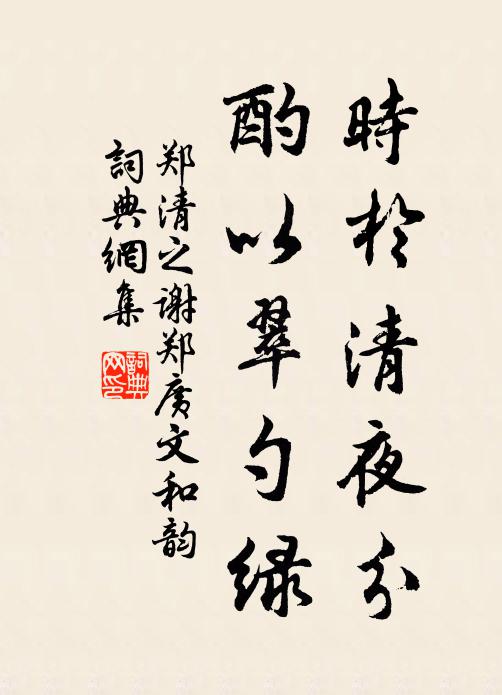 時於清夜分
酌以翠勺緑
郑清之谢郑广文和韵
词典網集
詞典
网印